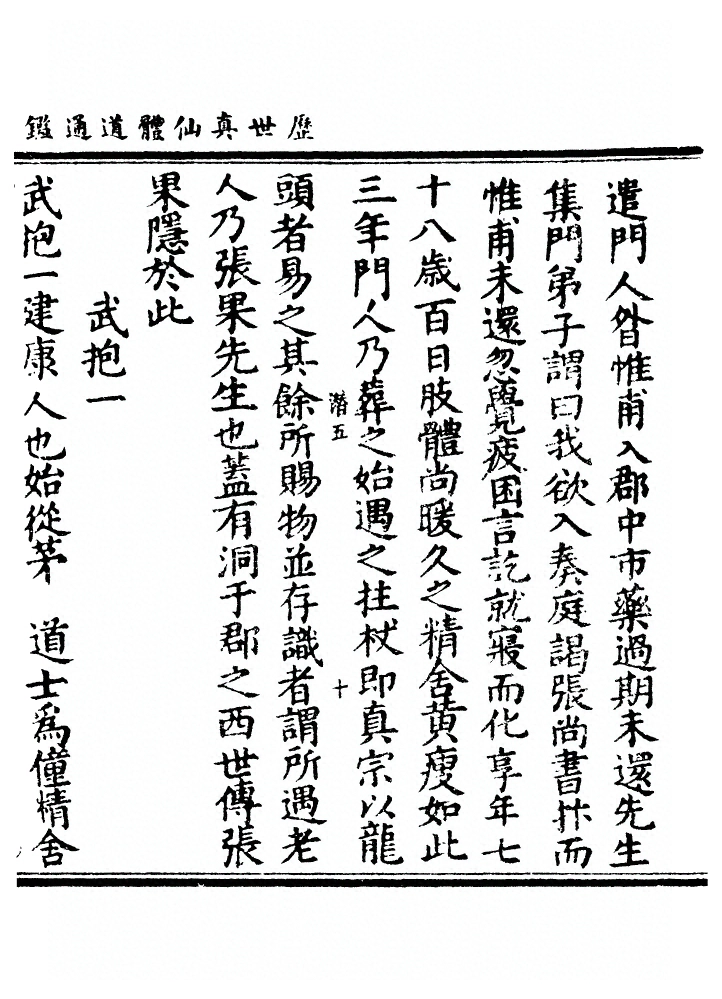 歷世真仙體道通鑑
遣門人昝惟甫入郡中市藥過期未還先生
集門弟子謂曰我欲入奏庭謁張尚書抃而
惟甫未還忽覺疲困言訖就寢而化享年七
十八歲百日肢體尚暖久之精舍黃瘦如此
三年門人乃葬之始遇之拄杖即真宗以龍
潛五
十
頭者易之其餘所賜物並存識者謂所遇老
人乃張果先生也蓋有洞于郡之西世傳張
果隱於此
武抱一
武抱一建康人也始從茅 道士為僮精舍